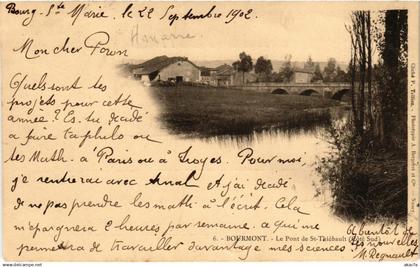 Bourg-Ste Marie, le 22 Septembre 1902.
Mon cher Pown
Quels sont tes
projets pour cette
année? Es-tu décidé
a faire ta philo ou
tes Math. à Paris ou à Troyes. Pour moi
je rentrerai avec et j'ai décidé
de ne pas prendre les math à l'écrit. Cela
m'épargnera 2 heures par semaine. a qui me
permettra de travailler davantage mes sciences
A bientôt de
tes nouvelles
M. Regnault
6. - BOURMONT. - Le Pont de St-Thiébault (Côté Sud)